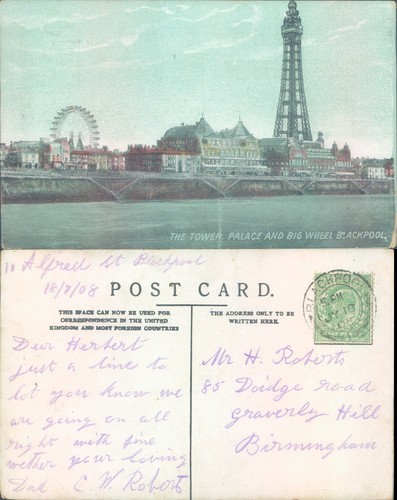 THE TOWER, PALACE AND BIG WHEEL BLACKPOOL.
10 Alfred St Blackpool
18/7/08
POST CARD.
THIS SPACE CAN NOW BE USED FOR
CORRESPONDENCE IN THE UNITED
KINGDOM AND MOST FOREIGN COUNTRIES
THE ADDRESS ONLY TO BE
WRITTEN HERE.
BLACKPOOL
Dear Herbert
just a line to
let you know we
are going on all
right with fine
wether your loving
Dad C. W. Roberts
Mr H. Roberts
85 Doidge road
graverly Hill
Birmingham